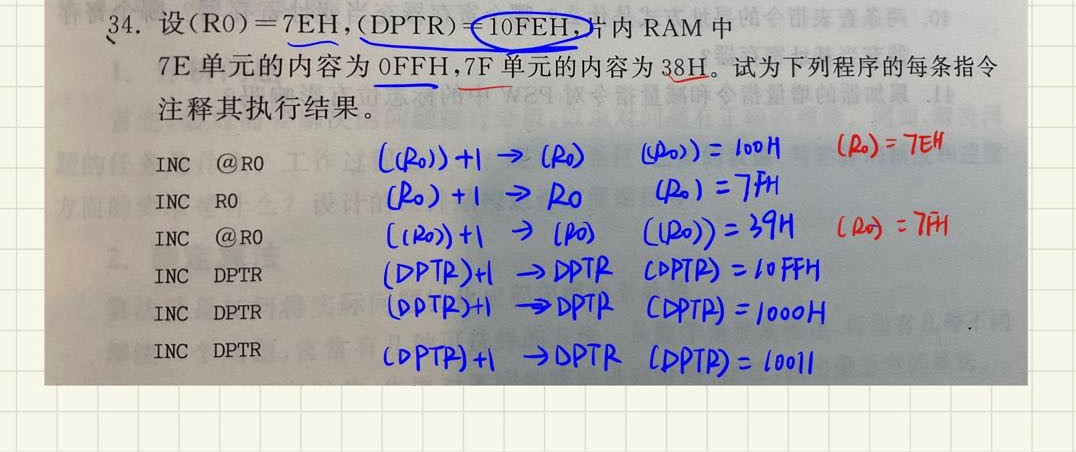 34. 设(R0)=7EH,(DPTR)=10FEH,片内 RAM 中
7E 单元的内容为 0FFH,7F 单元的内容为 38H。试为下列程序的每条指令
注释其执行结果。
INC @R0 ((R0))+1 → (R0) ((R0)) = 100H (R0) = 7EH
INC R0 (R0)+1 → R0 (R0) = 7FH
INC @R0 ((R0))+1 → (R0) ((R0)) = 39H (R0) = 7FH
INC DPTR (DPTR)+1 → DPTR (DPTR) = 10FFH
INC DPTR (DPTR)+1 → DPTR (DPTR) = 1000H
INC DPTR (DPTR)+1 → DPTR (DPTR) =